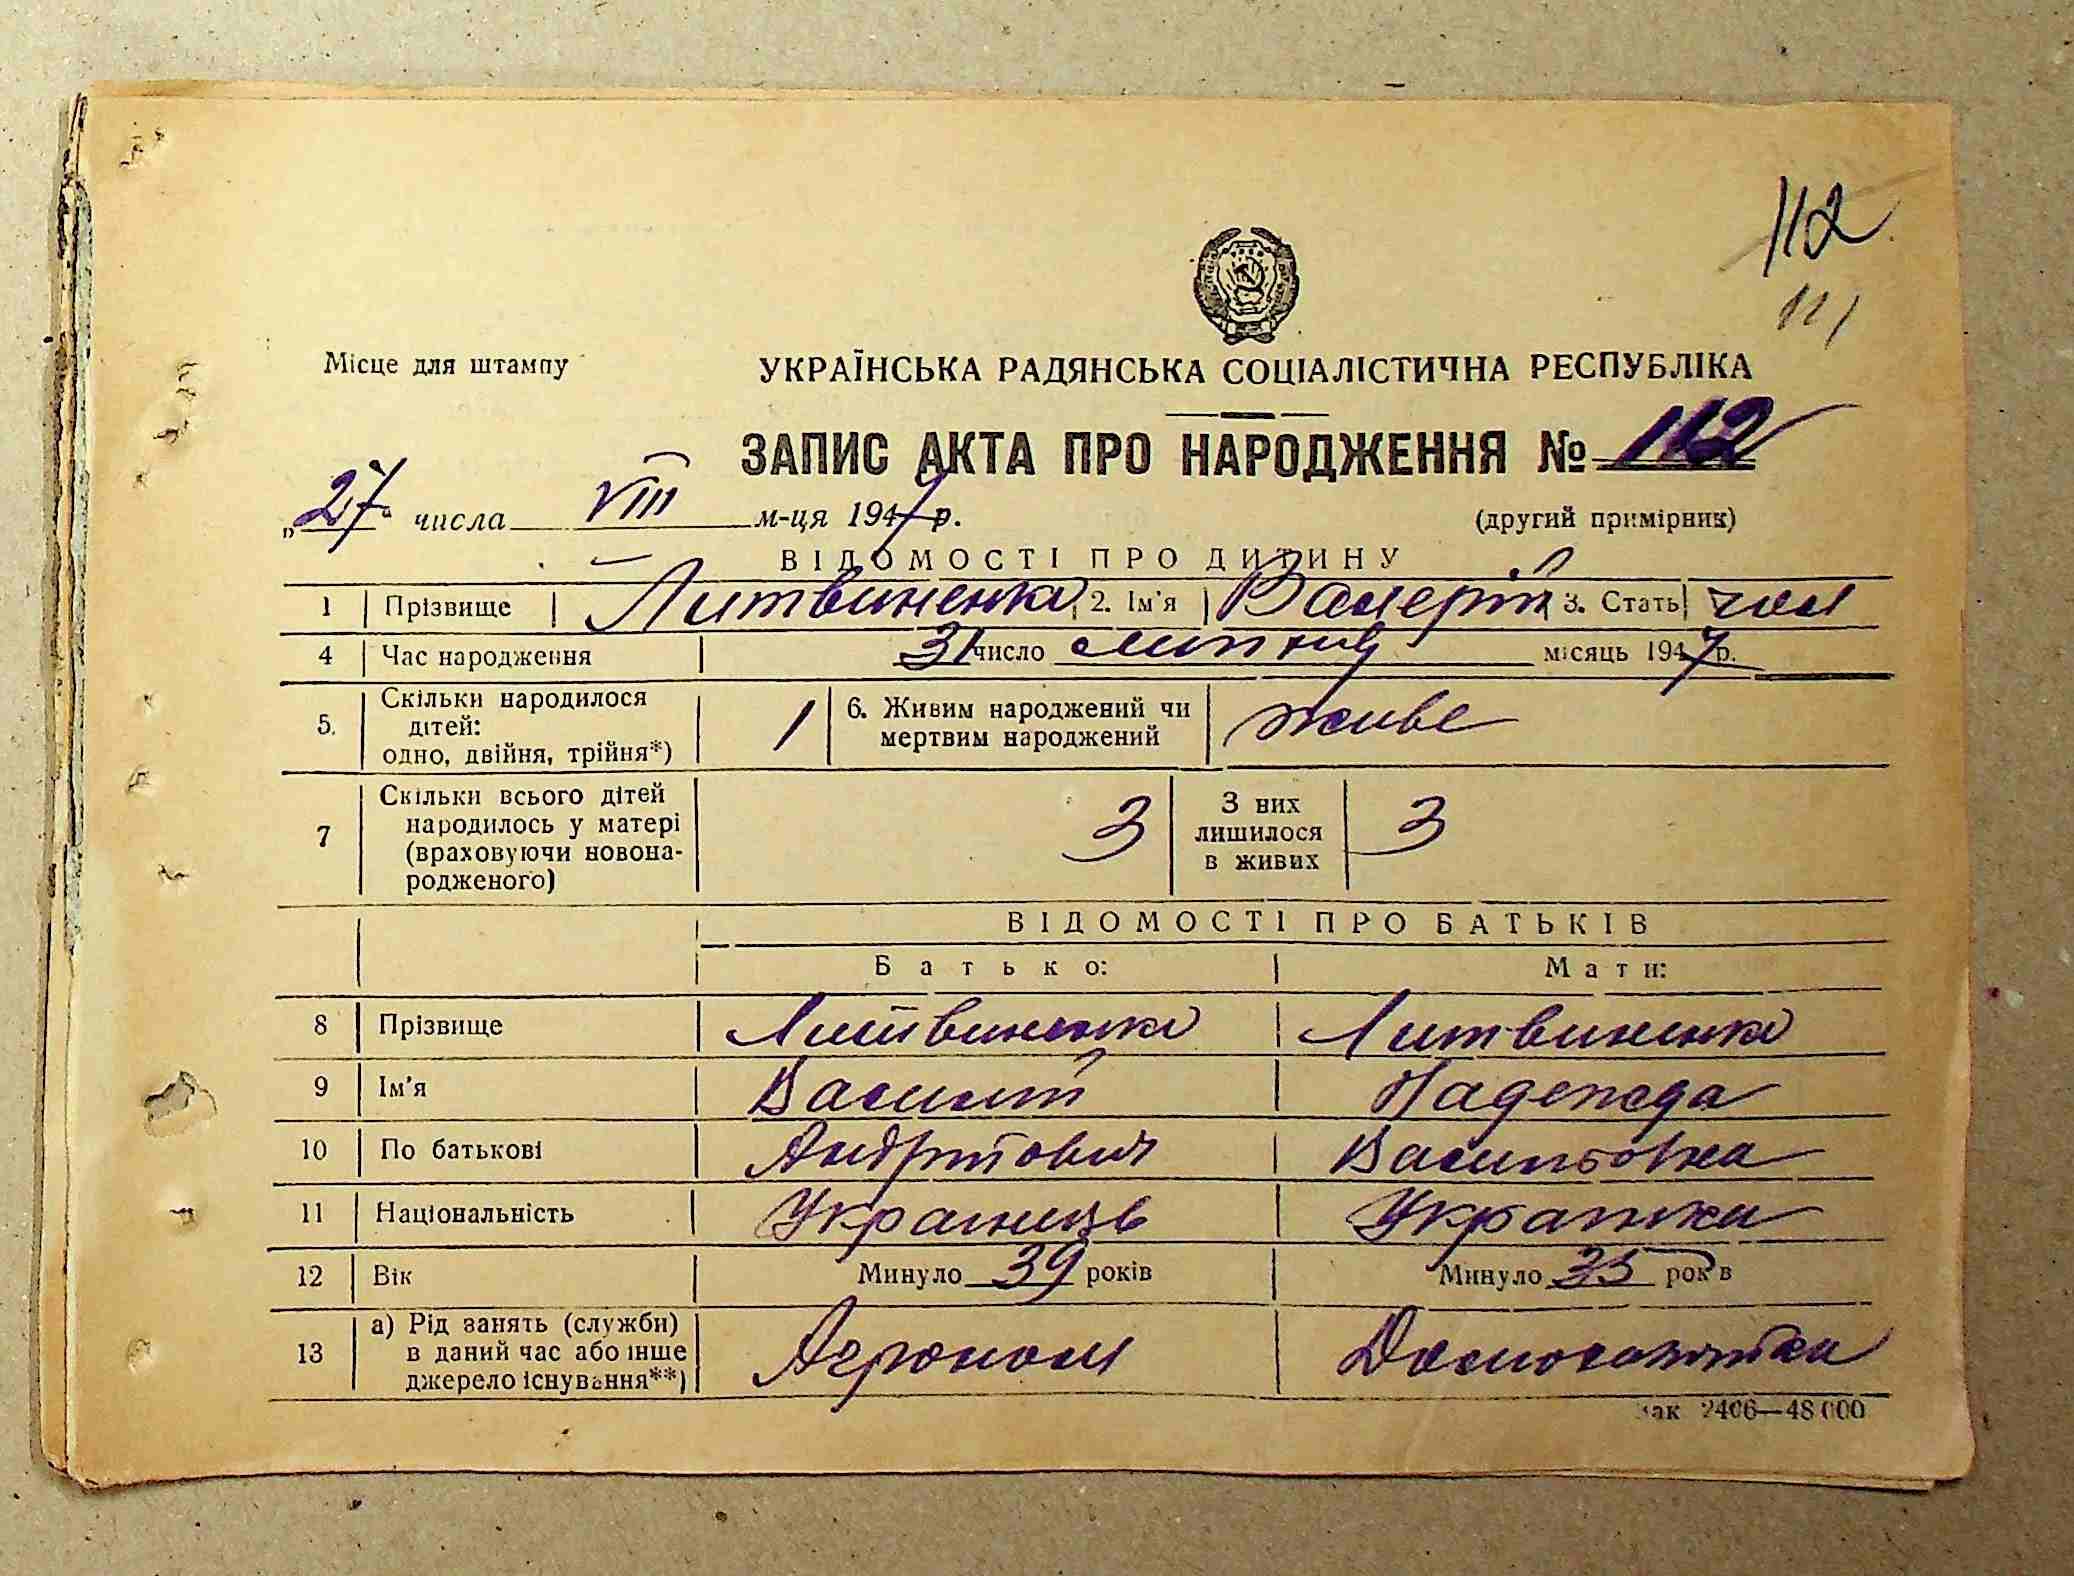 112
111
Місце для штампу
УКРАЇНСЬКА РАДЯНСЬКА СОЦІАЛІСТИЧНА РЕСПУБЛІКА
ЗАПИС АКТА ПРО НАРОДЖЕННЯ № 112
„27“ числа VIII м-ця 1947 р.
(другий примірник)
ВІДОМОСТІ ПРО ДИТИНУ
1 Прізвище Литвиненко 2. Ім'я Валерій 3. Стать чол
4 Час народження 31 число липня місяць 1947 р.
5. Скільки народилося дітей: одно, двійня, трійня*) 1 6. Живим народжений чи мертвим народжений живе
7 Скільки всього дітей народилось у матері (враховуючи новонародженого) 3 З них лишилося в живих 3
ВІДОМОСТІ ПРО БАТЬКІВ
Батько: Мати:
8 Прізвище Литвиненко Литвиненко
9 Ім'я Василій Надежда
10 По батькові Андрійович Васильовна
11 Національність Українець Українка
12 Вік Минуло 39 років Минуло 35 років
13 а) Рід занять (служби) в даний час або інше джерело існування**) Агроном Домохазяйка
Зак 2406—48000